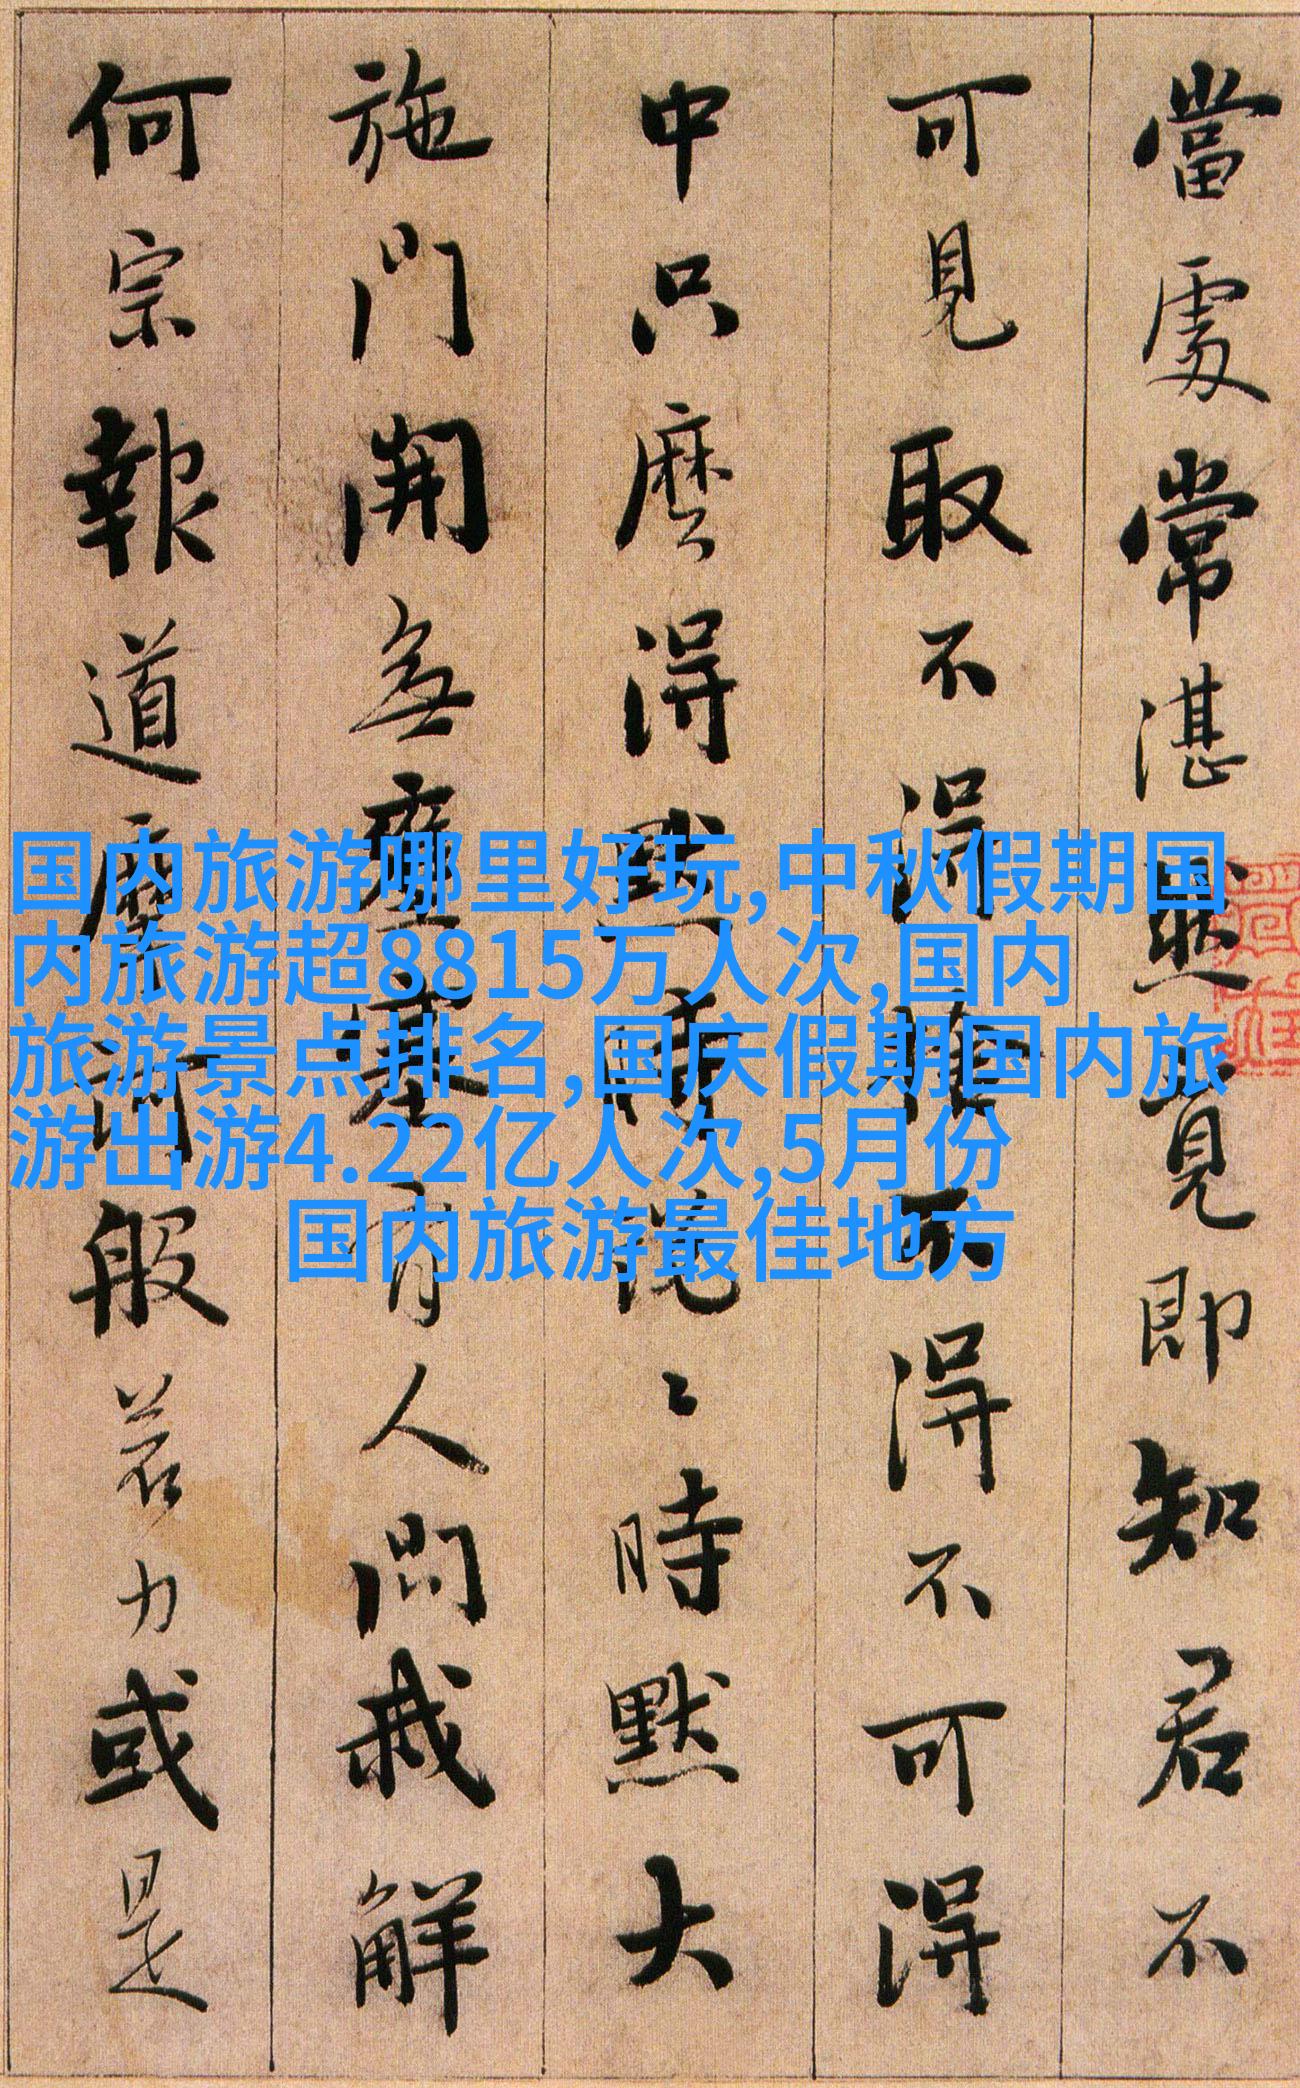 當處常湛然覓即知君不
可見取不得捨不得不可得
中只麼得默時說〻時默大
施門開無壅塞有人問我解
何宗報道摩訶般若力或是
国内旅游哪里好玩,中秋假期国
内旅游超8815万人次,国内
旅游景点排名,国庆假期国内旅
游出游4.22亿人次,5月份
国内旅游最佳地方